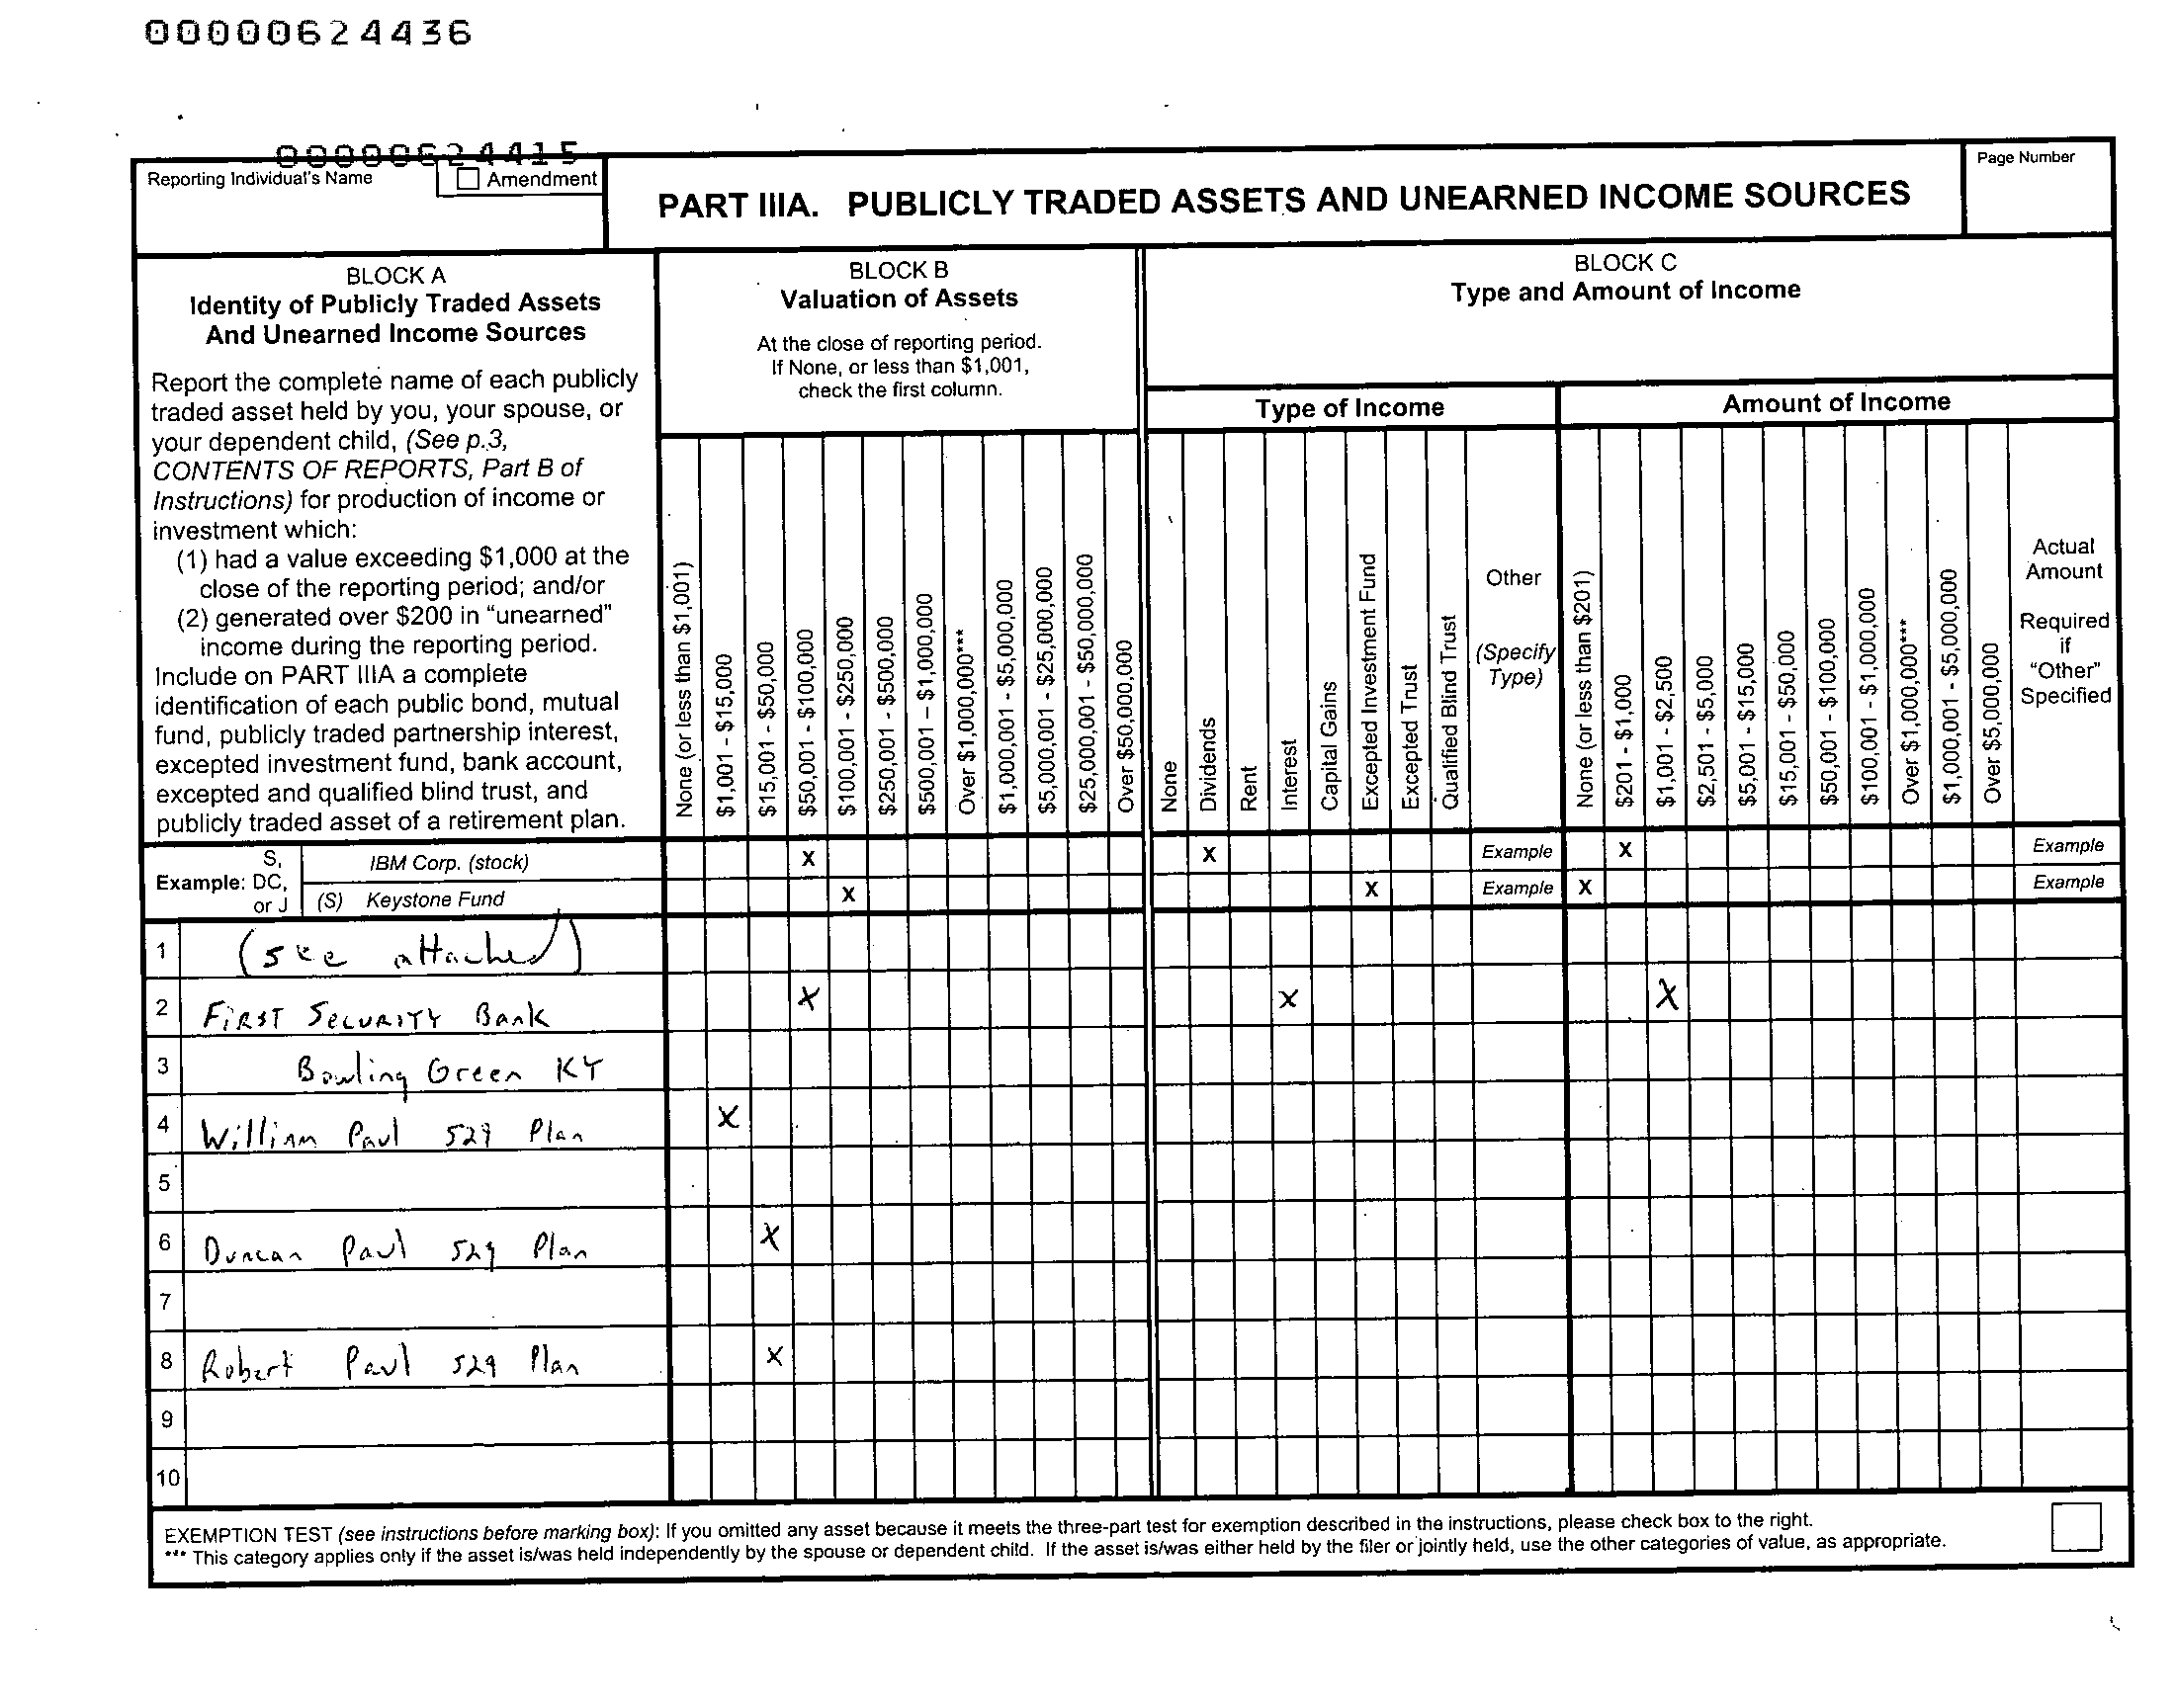 00000624436
00000624415
Reporting Individual's Name
Amendment
PART IIIA. PUBLICLY TRADED ASSETS AND UNEARNED INCOME SOURCES
Page Number
BLOCK A
Identity of Publicly Traded Assets
And Unearned Income Sources
Report the complete name of each publicly
traded asset held by you, your spouse, or
your dependent child, (See p.3,
CONTENTS OF REPORTS, Part B of
Instructions) for production of income or
investment which:
(1) had a value exceeding $1,000 at the
close of the reporting period; and/or
(2) generated over $200 in "unearned"
income during the reporting period.
Include on PART IIIA a complete
identification of each public bond, mutual
fund, publicly traded partnership interest,
excepted investment fund, bank account,
excepted and qualified blind trust, and
publicly traded asset of a retirement plan.
BLOCK B
Valuation of Assets
At the close of reporting period.
If None, or less than $1,001,
check the first column.
None (or less than $1,001)
$1,001 - $15,000
$15,001 - $50,000
$50,001 - $100,000
$100,001 - $250,000
$250,001 - $500,000
$500,001 – $1,000,000
Over $1,000,000***
$1,000,001 - $5,000,000
$5,000,001 - $25,000,000
$25,000,001 - $50,000,000
Over $50,000,000
BLOCK C
Type and Amount of Income
Type of Income
None
Dividends
Rent
Interest
Capital Gains
Excepted Investment Fund
Excepted Trust
Qualified Blind Trust
Other
(Specify
Type)
Amount of Income
None (or less than $201)
$201 - $1,000
$1,001 - $2,500
$2,501 - $5,000
$5,001 - $15,000
$15,001 - $50,000
$50,001 - $100,000
$100,001 - $1,000,000
Over $1,000,000***
$1,000,001 - $5,000,000
Over $5,000,000
Actual
Amount
Required
if
"Other"
Specified
Example: S,
DC,
or J
IBM Corp. (stock) X X Example X Example
(S) Keystone Fund X X Example X Example
1 (see attached)
2 First Security Bank X X X
3 Bowling Green KY
4 William Paul 529 Plan X
5
6 Duncan Paul 529 Plan X
7
8 Robert Paul 529 Plan X
9
10
EXEMPTION TEST (see instructions before marking box): If you omitted any asset because it meets the three-part test for exemption described in the instructions, please check box to the right.
*** This category applies only if the asset is/was held independently by the spouse or dependent child. If the asset is/was either held by the filer or jointly held, use the other categories of value, as appropriate.